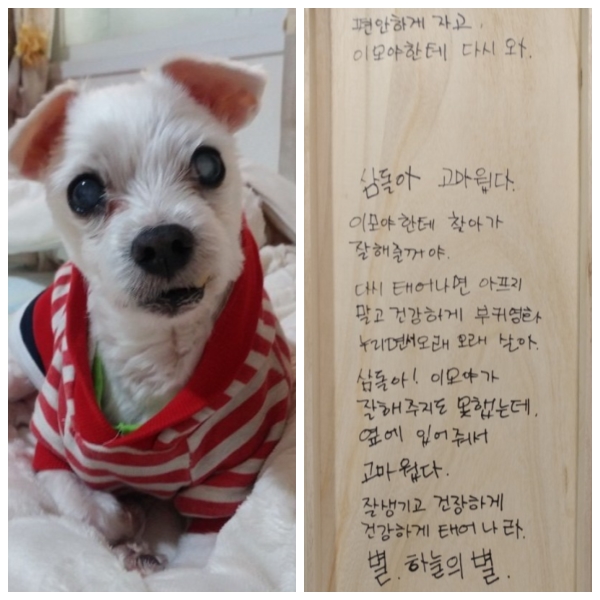 편안하게 자고.
이모야한테 다시 와.
삼돌아 고마웠다.
이모야한테 찾아가
잘해줄꺼야.
다시 태어나면 아프지
말고 건강하게 부귀영화
누리면서 오래 오래 살아.
삼돌아! 이모야가
잘해주지도 못했는데.
옆에 있어줘서
고마웠다.
잘생기고 건강하게
건강하게 태어나라.
별. 하늘의 별.